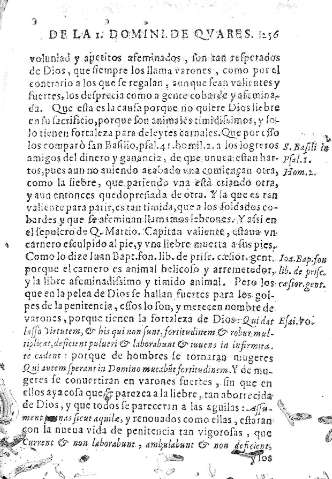 DE LA 1. DOMINI. DE QVARES. 1256
voluntad y apetitos afeminados, son tan respetados
de Dios, que siempre los llama varones, como por el
contrario a los que se regalan, aunque sean valientes y
fuertes, los desprecia como a gente cobarde y afemina-
da. Que esta es la causa porque no quiere Dios liebre
en su sacrificio, porque son animales timidissimos, y so-
lo tienen fortaleza para deleytes carnales. Que por esso
los comparò san Basilio, psal. 41. homil. 2. a los logreros
amigos del dinero y ganancia, de que nunca estan har-
tos, pues aun no auiendo acabado vna comiençan otra,
como la liebre, que pariendo vna està criando otra,
y aun entonces quedo preñada de otra. Y la que es tan
valiente para parir, es tan timida, que a los soldados co-
bardes y que se afeminan llamamos lebrones. Y assi en
el sepulcro de Q. Marcio. Capitan valiente, estaua vn
carnero esculpido al pie, y vna liebre muerta a sus pies,
Como lo dize Iuan Bapt. fon. lib. de prisc. cæsior. gent.
porque el carnero es animal belicoso y arremetedor,
y la libre afeminadissimo y timido animal. Pero los
que en la pelea de Dios se hallan fuertes para los gol-
pes de la penitencia, essos lo son, y merecen nombre de
varones, porque tienen la fortaleza de Dios: Qui dat
lasso virtutem, & his qui non sunt, fortitudinem & robur mul-
tiplicat, deficient pulueri & laborabunt & iuuenes in infirmita-
te cadent: porque de hombres se tornaran mugeres
Qui autem sperant in Domino mutabũt fortitudinem. Y de mu-
geres se conuertiran en varones fuertes, sin que en
ellos aya cosa que parezca a la liebre, tan aborrecida
de Dios, y que todos se pareceran a las aguilas: Assu-
ment pennas sicut aquilæ, y renouados como ellas, estaran
con la nueua vida de penitencia tan vigorosas, que
Current & non laborabunt, ambulabunt & non deficient,
y los
S. Basili in
Psal. 1.
Hom. 2.
Ioa. Bap. fon
lib. de prisc.
cæsior. gent.
Esai. 40.